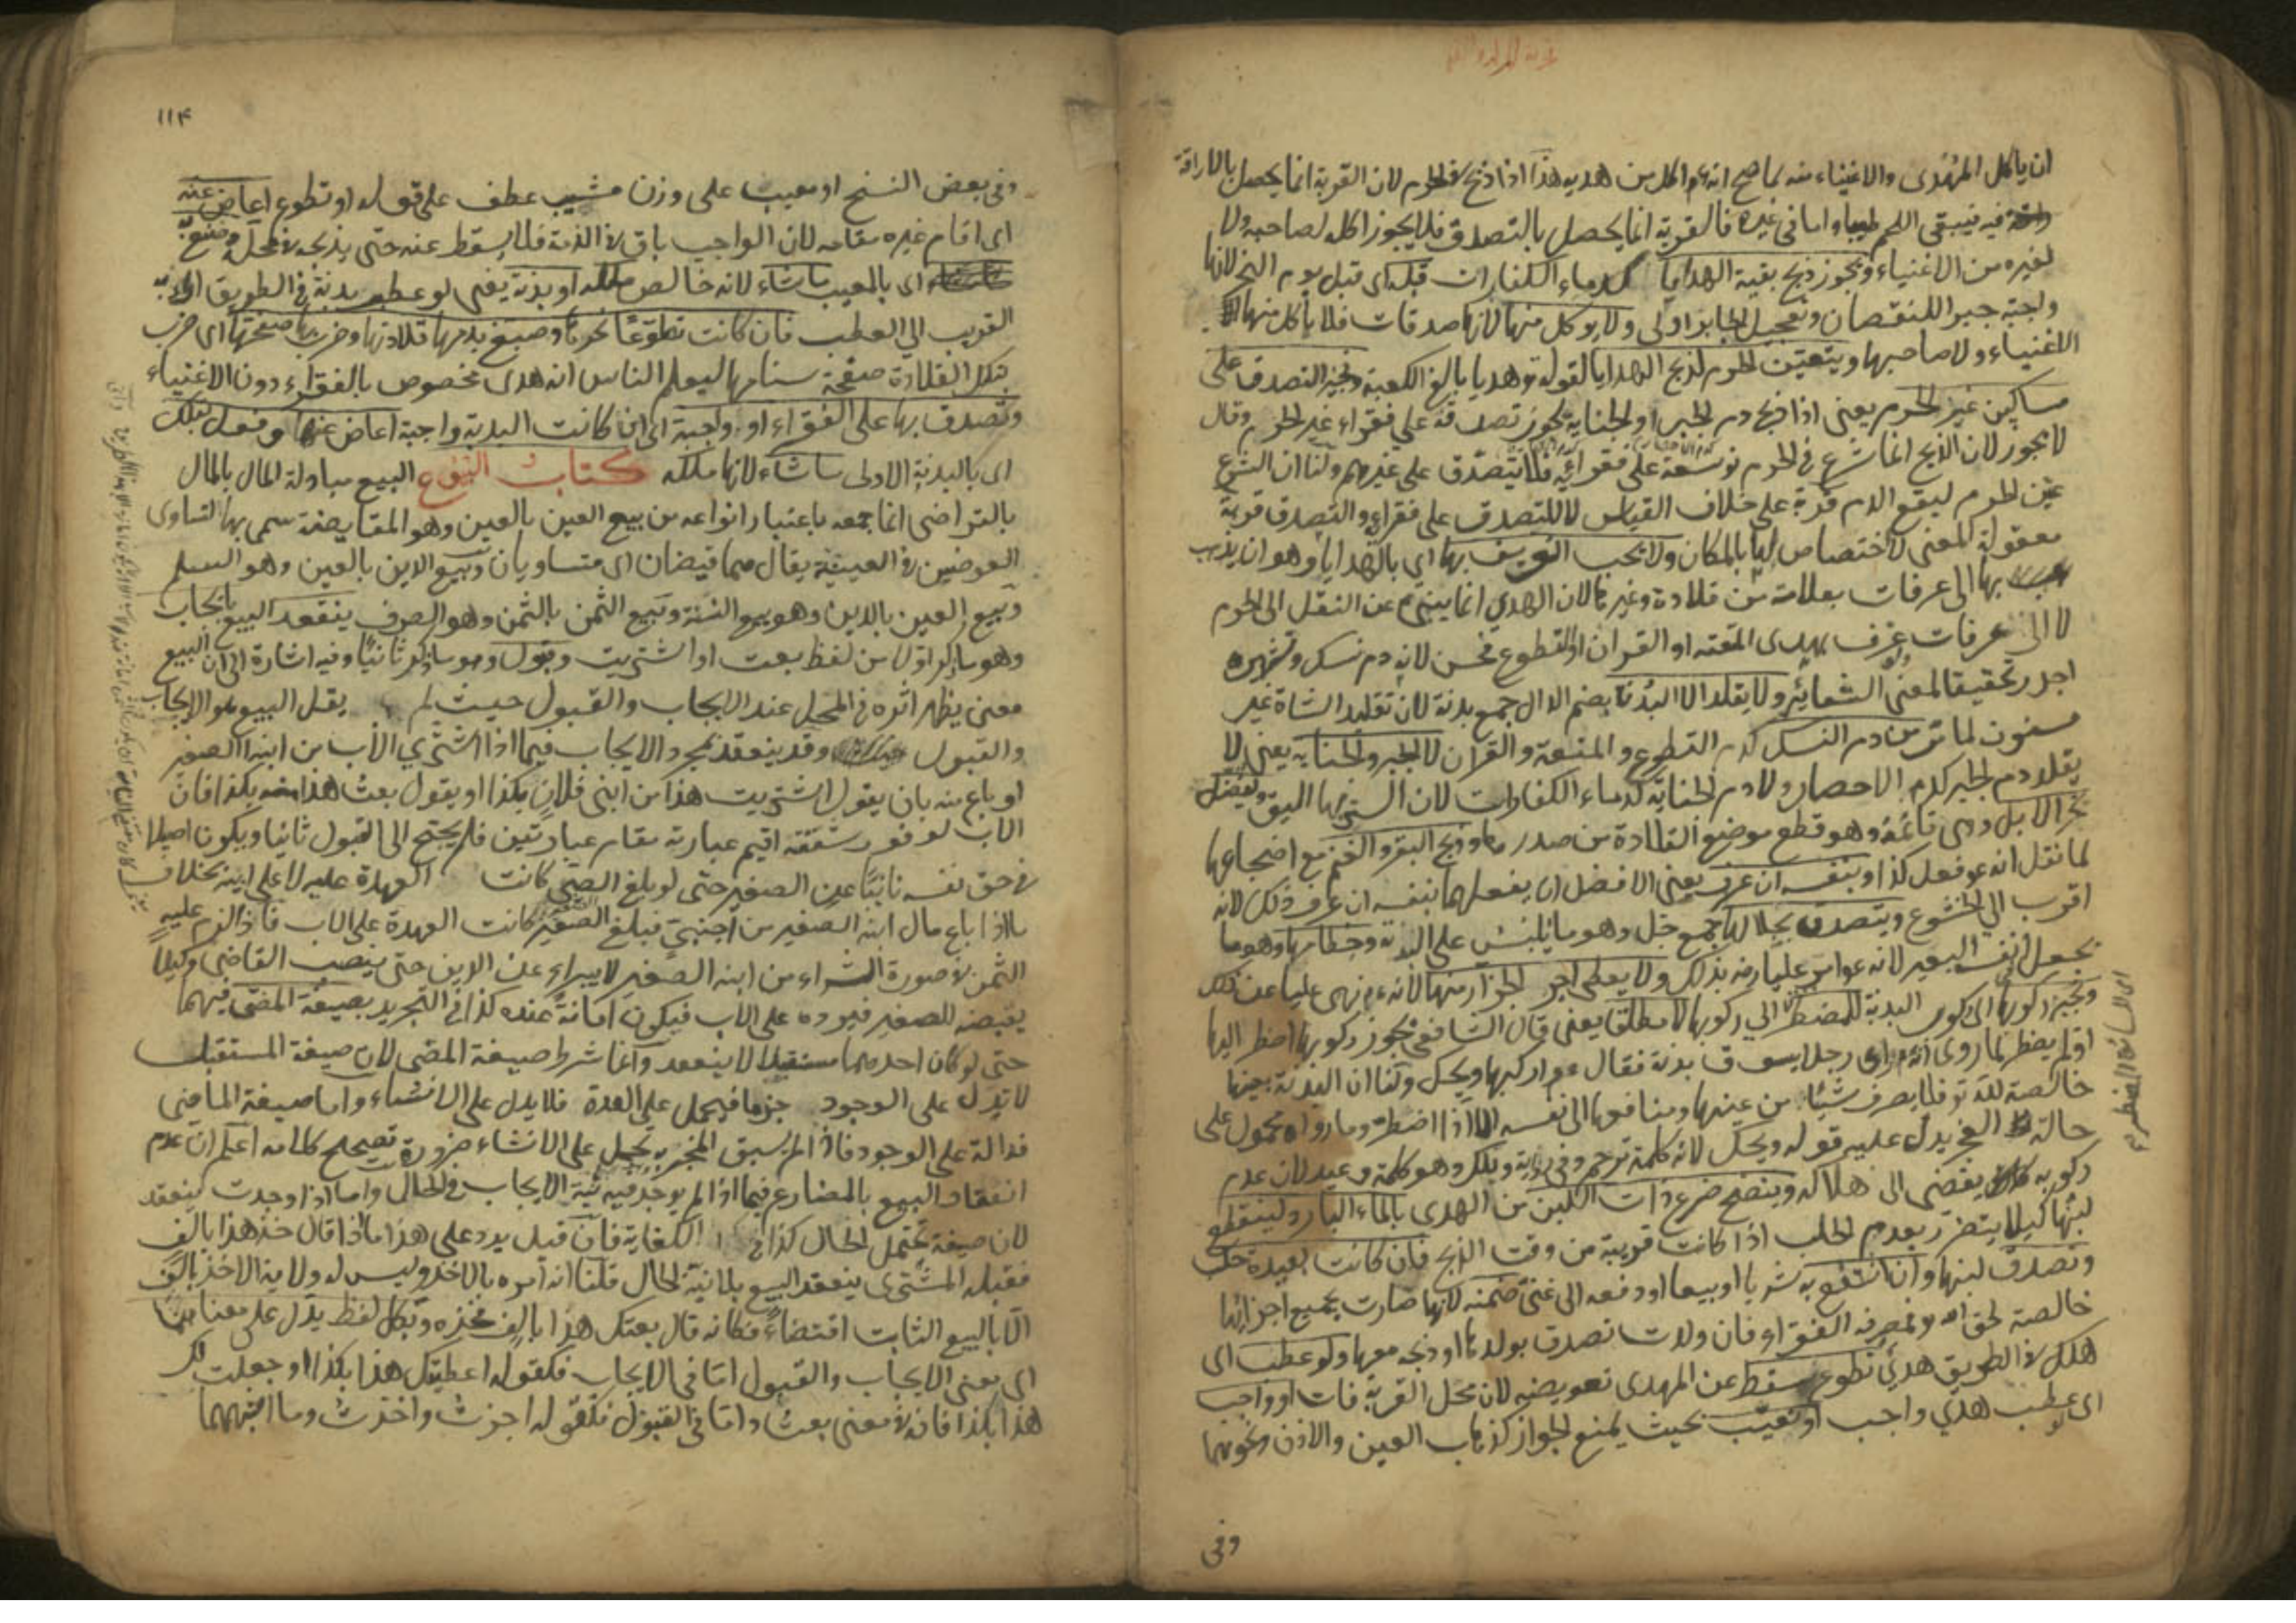 ان ياكل المهدى والاغنياء منه كما صح انه عم اكل من هديه هذا اذا ذبح في الحرم لان القربة انما يحصل بالاراقة
فيه فيبقى اللحم طيبا واما في غيره فالقربة انما يحصل بالتصدق فلا يجوز اكله لصاحبه ولا
لغيره من الاغنياء ويجوز ذبح بقية الهدايا كدماء الكفارات قبله اى قبل يوم النحر لانها
واجبة جبرا للنقصان وتعجيل الجابر اولى ولا يوكل منها لانها صدقات فلا يأكل منها
الاغنياء ولا صاحبها ويتعين الحرم لذبح الهدايا لقوله تع هديا بالغ الكعبة ويجيز التصدق على
مساكين غير الحرم يعنى اذا ذبح دم الجبر او الجناية يجوز تصدقه على فقراء غير الحرم وقال
لا يجوز لان الذبح انما شرع في الحرم توسعة على فقرائه فلا يتصدق على غيرهم ولنا ان الشرع
عين الحرم ليقع الدم قربة على خلاف القياس لا للتصدق على فقرائه والتصدق قربة
معقولة المعنى لا اختصاص لها بالمكان ولا يجب التعريف بها اى بالهدايا وهو ان يذهب
بها الى عرفات بعلامة من قلادة وغيرها لان الهدي انما ينبئ عن النقل الى الحرم
لا الى عرفات عرف بهدى المتعة او القران او التطوع فحسن لانه دم نسك وتشهيره
اجدر تحقيقا لمعنى الشعائر ولا يقلد الا البدن بضم الدال جمع بدنة لان تقليد الشاة غير
مسنون لما مر من دم النسك كدم التطوع والمتعة والقران لا الجبر والجناية يعنى لا
يقلد دم الجبر كدم الاحصار ولا دم الجناية كدماء الكفارات لان الستر بها اليق ويفضل
نحر الابل وهى قائمة وهو قطع موضع القلادة من صدرها وذبح البقر والغنم مع اضجاعها
لما نقل انه عم فعل كذا وبنفسه ان عرف يعنى الافضل ان يفعلهما بنفسه ان عرف ذلك لانه
اقرب الى الخشوع ويتصدق بجلالها جمع جل وهو ما يلبس على البدنة وخطامها وهو ما
يجعل في انف البعير لانه عم امر عليا رضه بذلك ولا يعطى اجر الجزار منها لانه عم نهى عليا عن ذلك
ويجيز ركوبها اى ركوب البدنة للمضطر الى ركوبها لا مطلقا يعنى قال الشافعى يجوز ركوبها اضطر اليها
او لم يضطر لما روى انه عم راى رجلا يسوق بدنة فقال عم اركبها ويحك ولنا ان البدنة بعينها
خالصة لله تع فلا يصرف شيئا من عينها ومنافعها الى نفسه الا اذا اضطر وما رواه محمول على
حالة العجز يدل عليه قوله ويحك لانه كلمة ترحم وفى رواية ويلك وهو كلمة وعيد لان عدم
ركوبه يفضى الى هلاكه وينضح ضرع ذات اللبن من الهدى بالماء البارد لينقطع
لبنها كيلا يتضرر بعدم الحلب اذا كانت قريبة من وقت الذبح فان كانت بعيدة حلب
وتصدق لبنها وان انتفع به شربا او بيعا او دفعه الى غنى ضمنه لانها صارت بجميع اجزائها
خالصة لحق الله ومصرفه الفقراء فان ولدت تصدق بولدها او ذبحه معها ولو عطب اى
هلك في الطريق هدي تطوع سقط عن المهدى تعويضه لان محل القربة فات او واجب
اى لو عطب هدي واجب او تعيب بحيث يمنع الجواز كذهاب العين والاذن ونحوهما
وفى
١١۴
وفى بعض النسخ او معيب على وزن مشيب عطف على قوله او تطوع اعاض عنه
اى اقام غيره مقامه لان الواجب باق في الذمة فلا يسقط عنه حتى يذبحه في محله وصنع به
اى بالمعيب ما شاء لانه خالص ملكه او بدنة يعنى لو عطب بدنة في الطريق اى به
القريب الى العطب فان كانت تطوعا نحرها وصبغ بدمها قلادتها وضرب بها صفحتها اى ضرب
بتلك القلادة صفحة سنامها ليعلم الناس انه هدى مخصوص بالفقراء دون الاغنياء
وتصدق بها على الفقراء او واجبة اى ان كانت البدنة واجبة اعاض عنها وفعل بتلك
اى بالبدنة الاولى ما شاء لانها ملكه كتاب البيوع البيع مبادلة المال بالمال
بالتراضى انما جمعه باعتبار انواعه من بيع العين بالعين وهو المقايضة سمى بها لتساوى
العوضين في العينية يقال هما قيضان اى متساويان وبيع الدين بالعين وهو السلم
وبيع العين بالدين وهو بيع النسئة وبيع الثمن بالثمن وهو الصرف ينعقد البيع بايجاب
وهو ما ذكر اولا من لفظ بعت او اشتريت وقبول وهو ما ذكر ثانيا وفيه اشارة الى ان البيع
معنى يظهر اثره في المحل عند الايجاب والقبول حيث لم يقل البيع هو الايجاب
والقبول وقد ينعقد بمجرد الايجاب فيما اذا اشترى الأب من ابنه الصغير
او باع منه بان يقول اشتريت هذا من ابنى فلان بكذا او يقول بعت هذا منه بكذا فان
الاب لوفور شفقته اقيم عبارته مقام عبارتين فلم يحتج الى القبول ثانيا ويكون اصيلا
في حق نفسه نائبا عن الصغير حتى لو بلغ الصبى كانت العهدة عليه لا على ابنه بخلاف
ما اذا باع مال ابنه الصغير من اجنبي فبلغ الصغير كانت العهدة على الاب فاذا لزم عليه
الثمن في صورة الشراء من ابنه الصغير لا يبراء عن الدين حتى ينصب القاضى وكيلا
يقبضه للصغير فيرده على الاب فيكون امانة عنده كذا في التجريد بصيغة المضى فيهما
حتى لو كان احدهما مستقبلا لا ينعقد وانما شرط صيغة المضى لان صيغة المستقبل
لا تدل على الوجود جزما فيحمل على العدة فلا يدل على الانشاء واما صيغة الماضى
فدالة على الوجود فاذا لم يسبق المخبر به يحمل على الانشاء ضرورة تصحيح كلامه اعلم ان عدم
انعقاد البيع بالمضارع فيما اذا لم يوجد فيه نية الايجاب في الحال واما اذا وجدت ينعقد
لان صيغة تحتمل الحال كذا في الكفاية فان قيل يرد على هذا ما اذا قال خذ هذا بالف
فقبله المشترى ينعقد البيع بلا نية الحال قلنا انه آمره بالاخذ وليس له ولاية الاخذ بالف
الا بالبيع الثابت اقتضاء فكانه قال بعتك هذا بالف فخذه وبكل لفظ يدل على معناهما
اى بمعنى الايجاب والقبول اما في الايجاب فكقوله اعطيتك هذا بكذا او جعلت لك
هذا بكذا فانه في معنى بعت واما في القبول فكقوله اجزت واخذت وما اشبههما